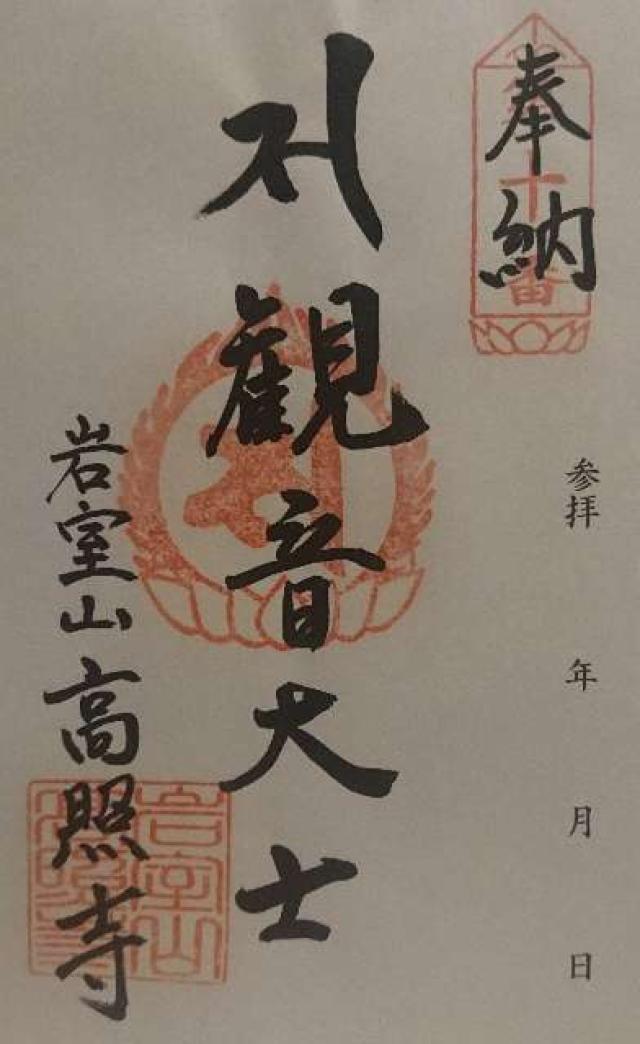 奉納
参拝 年 月 日
観音大士
岩室山高照寺
岩室山